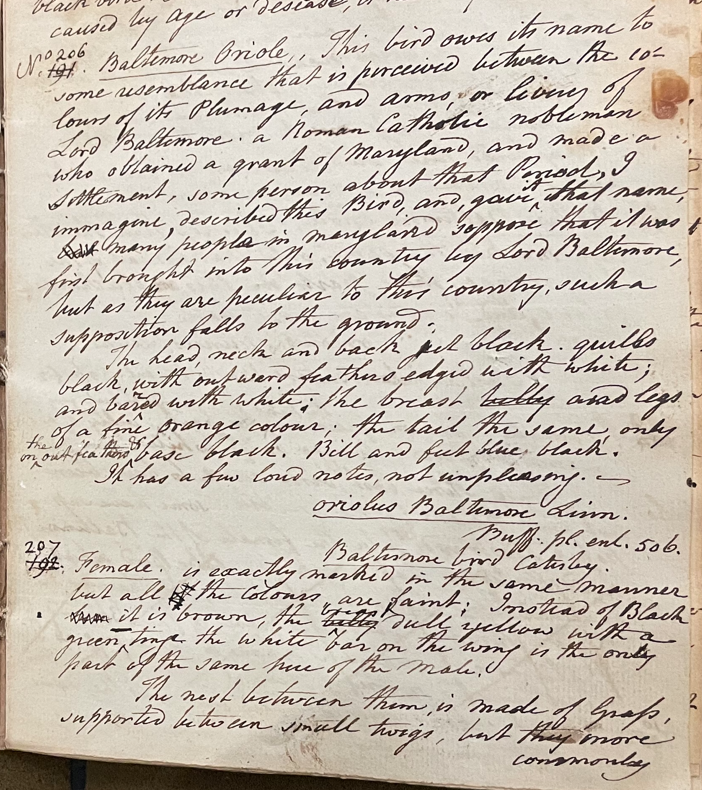 caused by age or desease,
No. 206
191. Baltimore Oriole,, This bird owes its name to
some resemblance that is perceived between the co-
lours of its Plumage, and arms, or livery of
Lord Baltimore. a Roman Catholic nobleman
who obtained a grant of Maryland, and made a
settlement, some person about that Period, I
immagine, described this Bird, and, gave it that name,
many people in maryland suppose that it was
first brought into this country by Lord Baltimore,
but as they are peculiar to this country, such a
supposition falls to the ground.
The head neck and back jet black. quills
black, with outward feathers edged with white;
and bared with white; the breast belly and legs
of a fine orange colour; the tail the same, only
the
on out feathers & base black. Bill and feet blue black.
It has a few loud notes, not unpleasing.
oriolus Baltimore Linn.
Buff. pl. enl. 506.
Baltimore bird Catesby.
207
192. Female. is exactly marked in the same manner
but all the colours are faint; Instead of Black
it is brown, the belly breast dull yellow with a
green tinge the white bar on the wing is the only
part of the same hue of the Male.
The nest between them, is made of Grass,
supported between small twigs, but they more
commonly